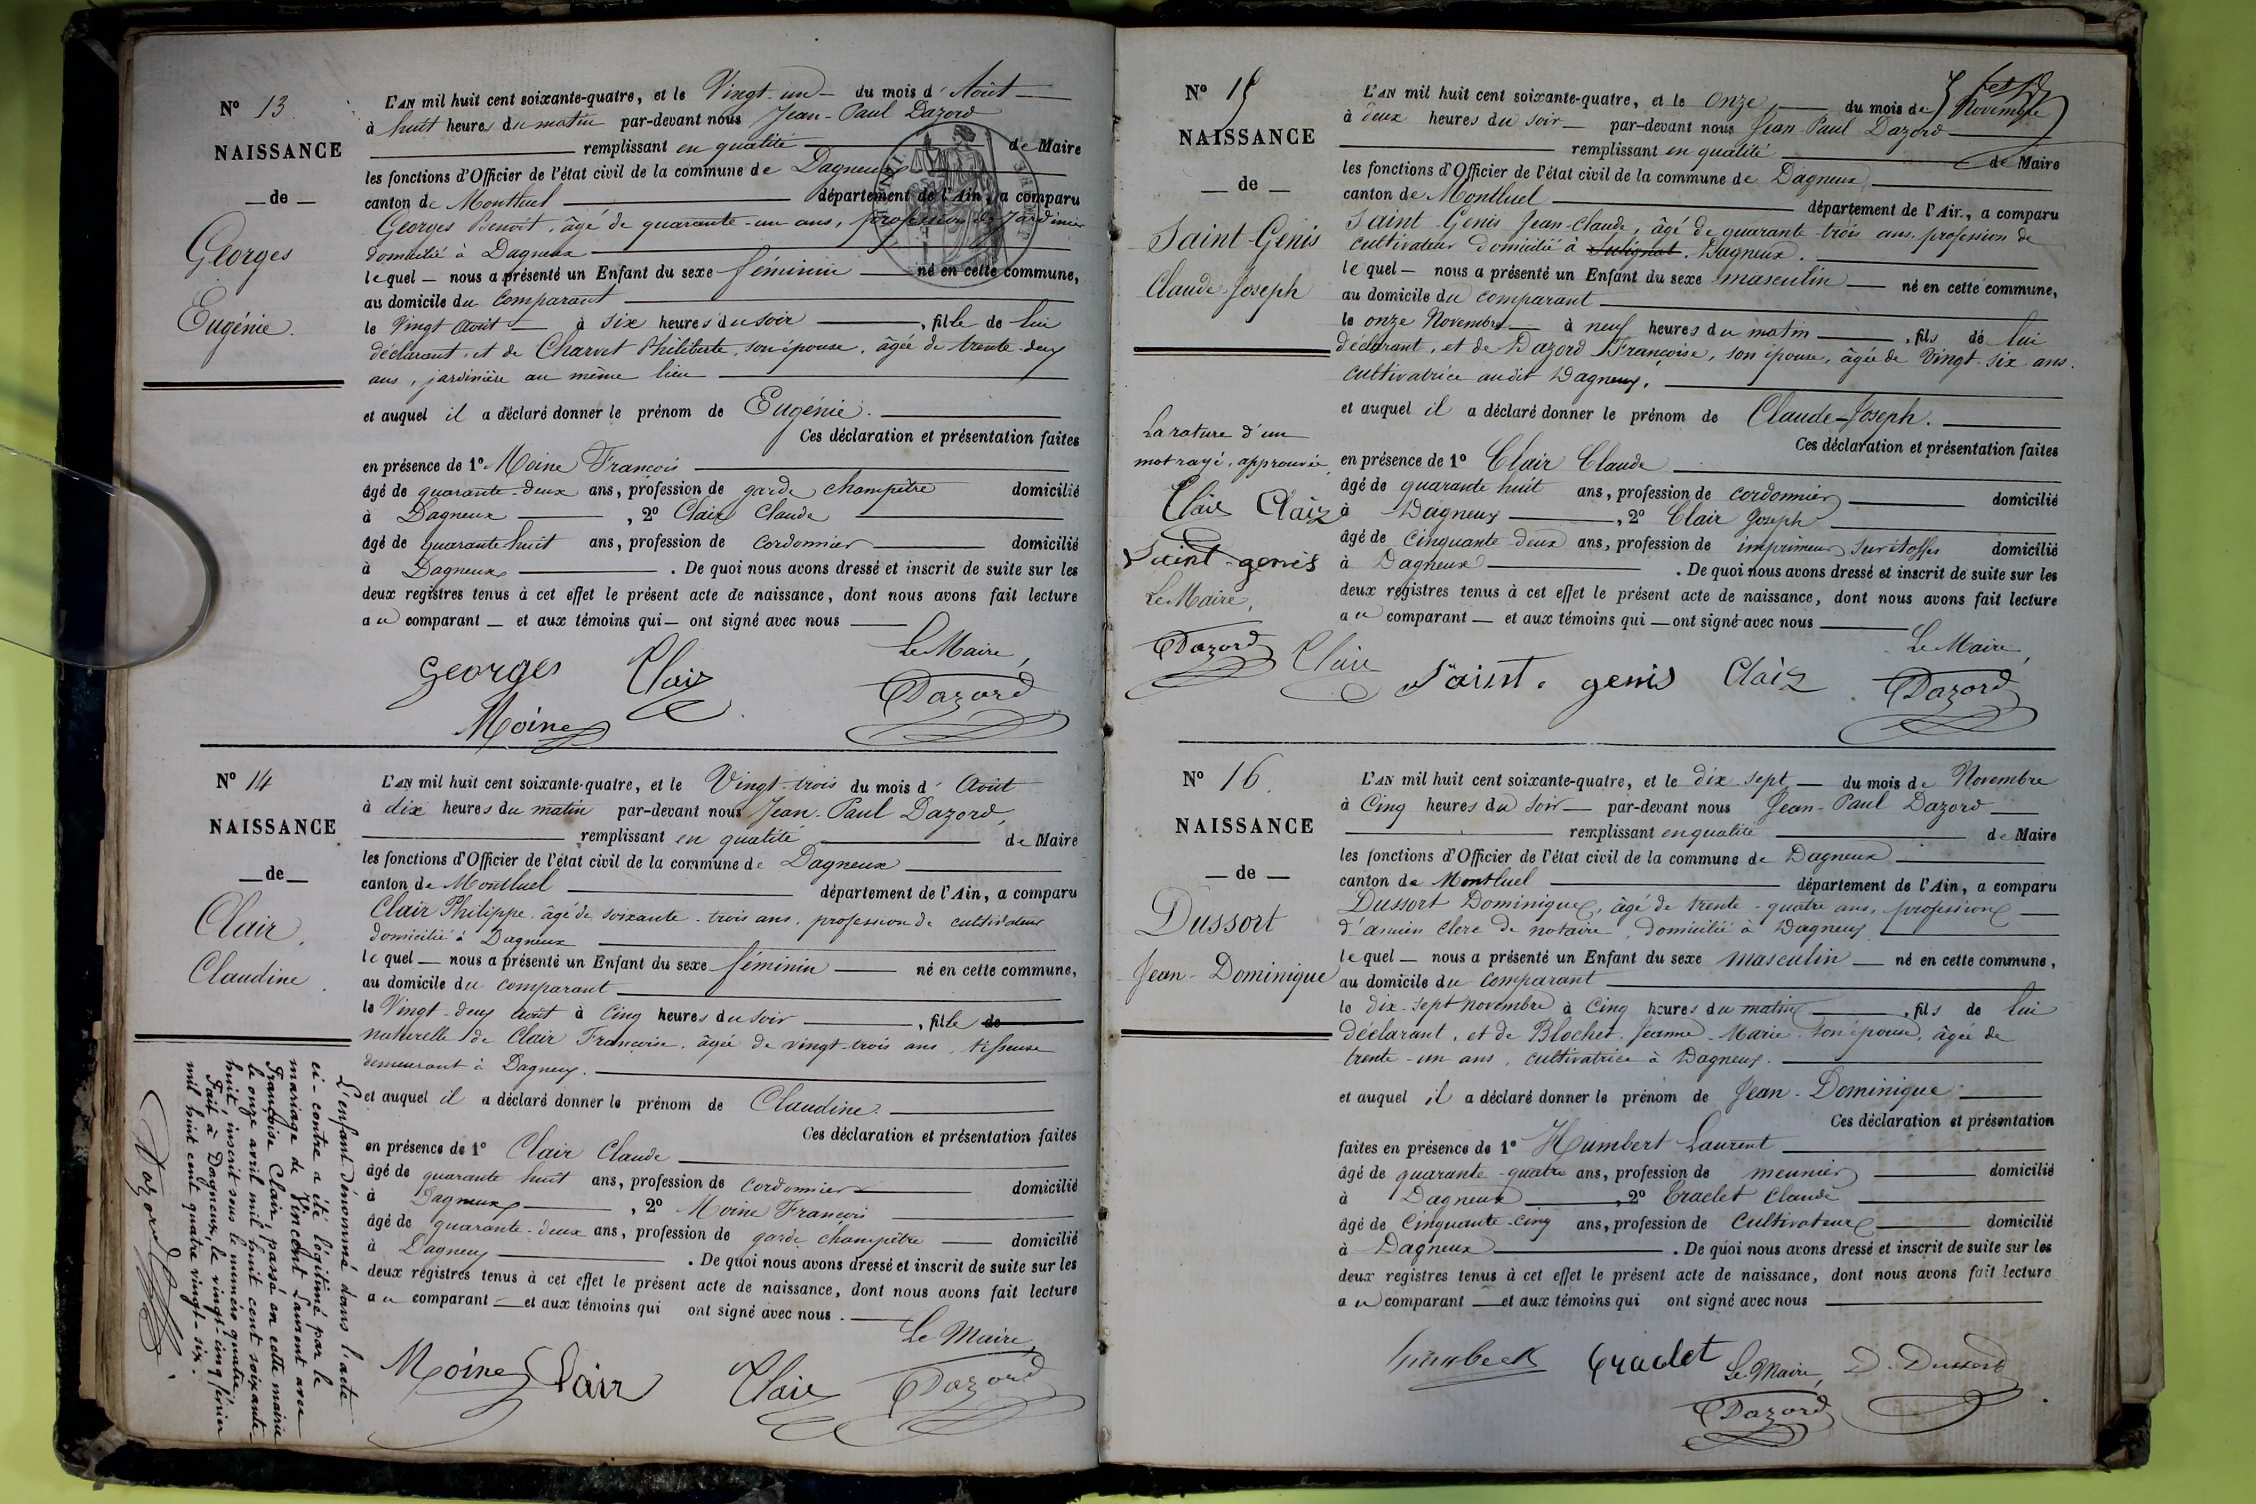 N° 13
NAISSANCE
de
Georges
Eugénie.
L'AN mil huit cent soixante-quatre, et le Vingt-un du mois d'Août
à huit heures du matin par-devant nous Jean-Paul Dazord
remplissant en qualité de Maire
les fonctions d'Officier de l'état civil de la commune de Dagneux
canton de Montluel département de l'Ain, a comparu
Georges Benoit, âgé de quarante-un ans, profession de Jardinier
domicilié à Dagneux
lequel nous a présenté un Enfant du sexe féminin né en cette commune,
au domicile du comparant
le Vingt Août à six heures du soir, fille de lui
déclarant, et de Charvet Philiberte, son épouse, âgée de trente-deux
ans, jardinière au même lieu
et auquel il a déclaré donner le prénom de Eugénie.
Ces déclaration et présentation faites
en présence de 1° Moine François
âgé de quarante-deux ans, profession de garde champêtre domicilié
à Dagneux, 2° Clair Claude
âgé de quarante huit ans, profession de cordonnier domicilié
à Dagneux. De quoi nous avons dressé et inscrit de suite sur les
deux registres tenus à cet effet le présent acte de naissance, dont nous avons fait lecture
au comparant et aux témoins qui ont signé avec nous
Le Maire,
Georges Clair
Moine Dazord
N° 14
NAISSANCE
de
Clair
Claudine
L'AN mil huit cent soixante-quatre, et le Vingt-trois du mois d'Août
à dix heures du matin par-devant nous Jean-Paul Dazord,
remplissant en qualité de Maire
les fonctions d'Officier de l'état civil de la commune de Dagneux
canton de Montluel département de l'Ain, a comparu
Clair Philippe, âgé de soixante-trois ans, profession de cultivateur
domicilié à Dagneux
lequel nous a présenté un Enfant du sexe féminin né en cette commune,
au domicile du comparant
le Vingt-deux Août à cinq heures du soir, fille de
naturelle de Clair Françoise, âgée de vingt-trois ans, tisseuse
demeurant à Dagneux.
et auquel il a déclaré donner le prénom de Claudine.
Ces déclaration et présentation faites
en présence de 1° Clair Claude
âgé de quarante huit ans, profession de cordonnier domicilié
à Dagneux, 2° Moine François
âgé de quarante-deux ans, profession de garde champêtre domicilié
à Dagneux. De quoi nous avons dressé et inscrit de suite sur les
deux registres tenus à cet effet le présent acte de naissance, dont nous avons fait lecture
au comparant et aux témoins qui ont signé avec nous.
Le Maire,
Moine Clair Clair Dazord
L'enfant dénommé dans l'acte
ci-contre a été légitimé par le
mariage de Vincent Laurent avec
Françoise Clair, passé en cette mairie
le onze avril mil huit cent soixante
huit, inscrit sous le numéro quatre.
Fait à Dagneux, le vingt-cinq février
mil huit cent quatre vingt-six.
Dazord
N° 15
NAISSANCE
de
Saint-Genis
Claude-Joseph
L'AN mil huit cent soixante-quatre, et le Onze du mois de Novembre
à deux heures du soir par-devant nous Jean-Paul Dazord
remplissant en qualité de Maire
les fonctions d'Officier de l'état civil de la commune de Dagneux
canton de Montluel département de l'Ain, a comparu
Saint-Genis Jean-Claude, âgé de quarante-trois ans, profession de
cultivateur domicilié à Dagneux.
lequel nous a présenté un Enfant du sexe masculin né en cette commune,
au domicile du comparant
le onze Novembre à neuf heures du matin, fils de lui
déclarant, et de Dazord Françoise, son épouse, âgée de Vingt-six ans.
cultivatrice audit Dagneux.
et auquel il a déclaré donner le prénom de Claude-Joseph.
Ces déclaration et présentation faites
en présence de 1° Clair Claude
âgé de quarante huit ans, profession de cordonnier domicilié
à Dagneux, 2° Clair Joseph
âgé de cinquante-deux ans, profession de imprimeur sur étoffes domicilié
à Dagneux. De quoi nous avons dressé et inscrit de suite sur les
deux registres tenus à cet effet le présent acte de naissance, dont nous avons fait lecture
au comparant et aux témoins qui ont signé avec nous
Le Maire,
Clair Saint-genis Clair Dazord
La rature d'un
mot rayé, approuvée
Clair Clair
Saint-genis
Le Maire,
Dazord
N° 16.
NAISSANCE
de
Dussort
Jean-Dominique
L'AN mil huit cent soixante-quatre, et le dix-sept du mois de Novembre
à Cinq heures du soir par-devant nous Jean-Paul Dazord
remplissant en qualité de Maire
les fonctions d'Officier de l'état civil de la commune de Dagneux
canton de Montluel département de l'Ain, a comparu
Dussort Dominique, âgé de trente-quatre ans, profession
d'ancien clerc de notaire, domicilié à Dagneux
lequel nous a présenté un Enfant du sexe masculin né en cette commune,
au domicile du comparant
le dix-sept novembre à cinq heures du matin, fils de lui
déclarant, et de Blochet Jeanne-Marie son épouse, âgée de
trente-un ans, cultivatrice à Dagneux.
et auquel il a déclaré donner le prénom de Jean-Dominique
Ces déclaration et présentation
faites en présence de 1° Humbert Laurent
âgé de quarante-quatre ans, profession de meunier domicilié
à Dagneux, 2° Craclet Claude
âgé de Cinquante-cinq ans, profession de Cultivateur domicilié
à Dagneux. De quoi nous avons dressé et inscrit de suite sur les
deux registres tenus à cet effet le présent acte de naissance, dont nous avons fait lecture
au comparant et aux témoins qui ont signé avec nous
Craclet Le Maire, D. Dussort
Dazord